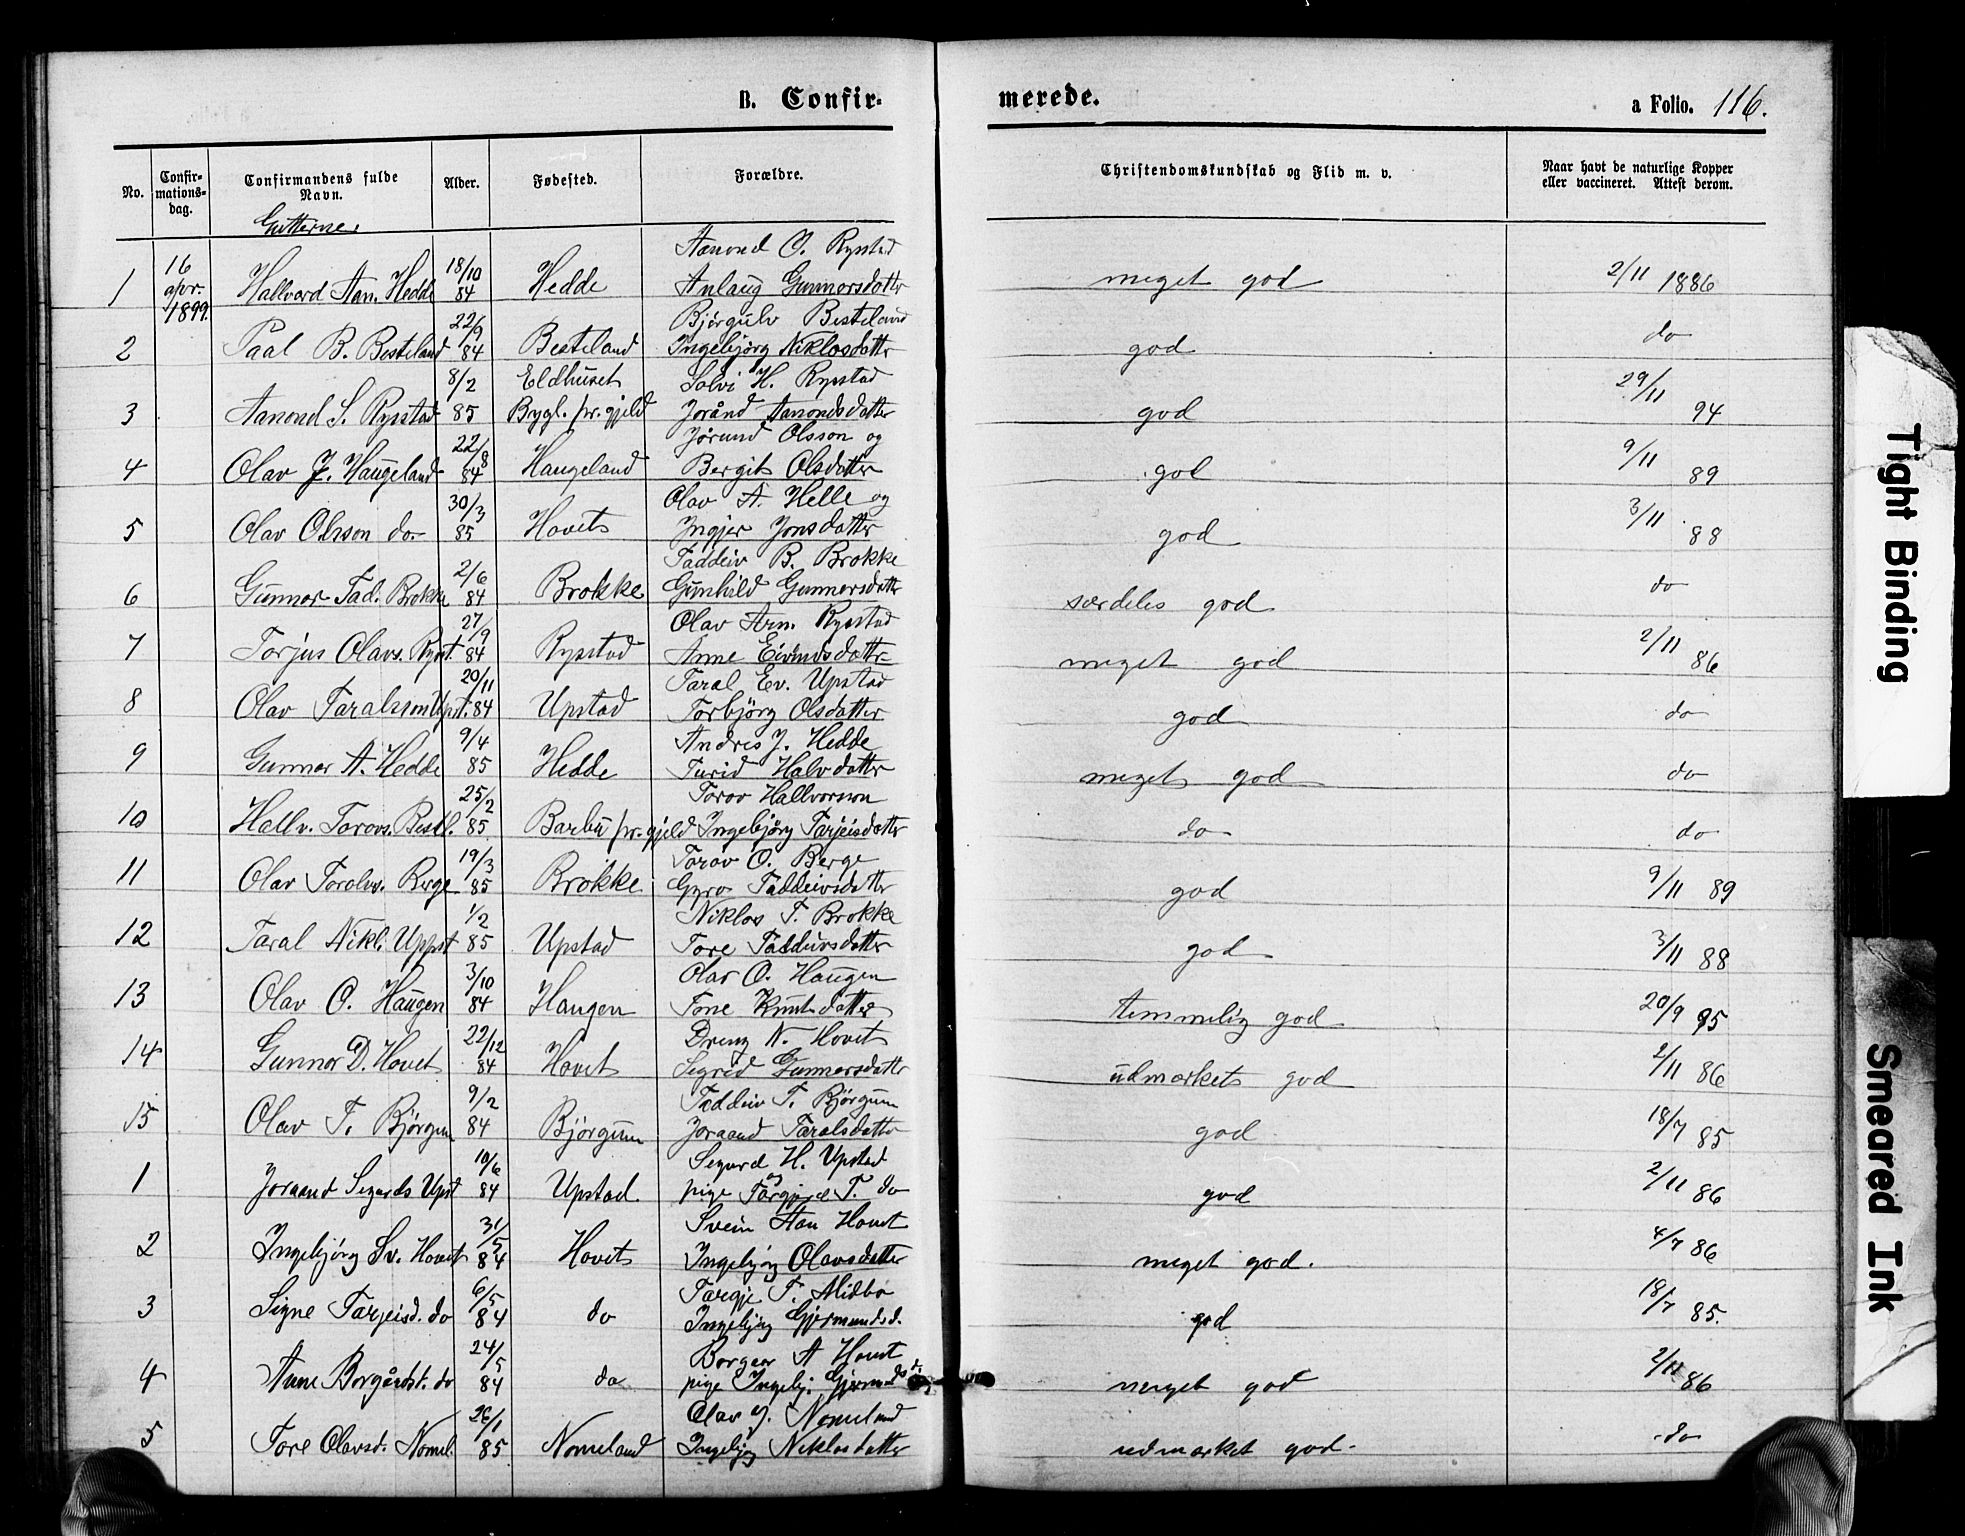 B. Confir-
merede.
a Folio. 116.
No.
Confir-
mations-
dag.
Confirmandens fulde
Navn.
Alder.
Fødested.
Forældre.
Christendomskundskab og Flid m. v.
Naar havt de naturlige Kopper
eller vaccineret. Attest derom.
Gutterne
Aanond O. Rysstad
1 16 apr. 1899. Hallvard Aan. Hedde 18/10 84 Hedde Anlaug Gunnarsdatter meget god 2/11 1886
Bjørgulv Besteland
2 Paal B. Besteland 22/9 84 Besteland Ingebjörg Niklosdatter god do
Eldhuset Solvi H. Rysstad
3 Aanond S. Rysstad 8/2 85 Bygl. pr. gjeld Joránd Aanondsdatter god 29/11 94
Jørund Olsson og
4 Olav J. Haugeland 22/8 84 Haugeland Bergit Olsdatter god 9/11 89
Olav A. Helle og
5 Olav Olsson do 30/3 85 Hovet Ingjer Jonsdatter god 3/11 88
Taddeiv B. Brokke
6 Gunnar Tad. Brokke 2/6 84 Brokke Gunhild Gunnarsdatter særdeles god do
Olav Arn. Rysstad
7 Torjus Olavs. Rysst. 27/9 84 Rysstad Anne Eivindsdatter meget god 2/11 86
Taral Ev. Upstad
8 Olav Taralsson Upst. 20/11 84 Upstad Torbjörg Olsdatter god do
Andres J. Hedde
9 Gunnar A. Hedde 9/4 85 Hedde Turid Halvdatter meget god do
Torov Hallvorson
10 Hallv. Torovs. Bestl. 25/2 85 Barbu pr. gjeld Ingebjörg Tarjeisdatter do do
Torov O. Berge
11 Olav Torolvs. Berge 19/3 85 Brokke Gyro Taddeivsdatter god 9/11 89
Niklos T. Brokke
12 Taral Nikl. Uppst 1/2 85 Upstad Tore Taddeivsdatter god 3/11 88
Olav O. Haugen
13 Olav O. Haugen 3/10 84 Haugen Tone Knutsdatter temmelig god 20/9 95
Dreng N. Hovet
14 Gunnar D. Hovet 22/12 84 Hovet Sigrid Gunnarsdatter udmærket god 2/11 86
Taddeiv T. Bjørgum
15 Olav T. Bjørgum 9/2 84 Bjørgum Joraand Taralsdatter god 18/7 85
Segurd H. Upstad
og
1 Joraand Segurds Upst 10/6 84 Upstad. pige Targjerd T. do god 2/11 86
Svein Aan Hovet
2 Ingebjörg Sv. Hovet 31/5 84 Hovet Ingebjörg Olavsdatter meget god. 4/7 86
Targje T. Midbø
3 Signe Tarjeisd. do 6/5 84 do Ingebjörg Gjermundsd. god 18/7 85.
Borgaar A Hovet
4 Anne Borgårdst. do 24/5 84 do pige Ingebj. Gjermundsd. meget god 2/11 86
Olav J. Nomeland
5 Tore Olavsd. Nomel. 26/1 85 Nomeland Ingebjörg Niklosdatter udmærket god do
Tight Binding
Smeared Ink